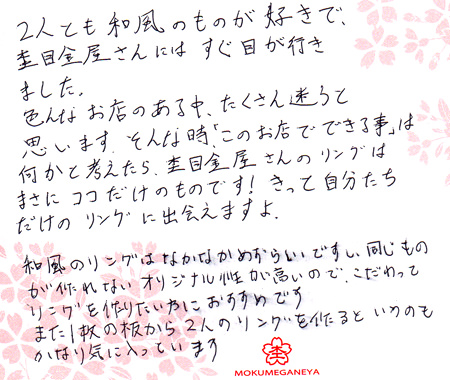 2人とも和風のものが好きで、
杢目金屋さんには すぐ目が行き
ました。
色んなお店のある中、たくさん迷うと
思います。そんな時「このお店でできる事」は
何かと考えたら、杢目金屋さんのリングは
まさにココだけのものです！きっと自分たち
だけのリングに出会えますよ。
和風のリングはなかなかめずらしいですし、同じもの
が作れないオリジナル性が高いので、こだわって
リングを作りたい方におすすめです
また1枚の板から2人のリングを作るというのも
かなり気に入っています
MOKUMEGANEYA